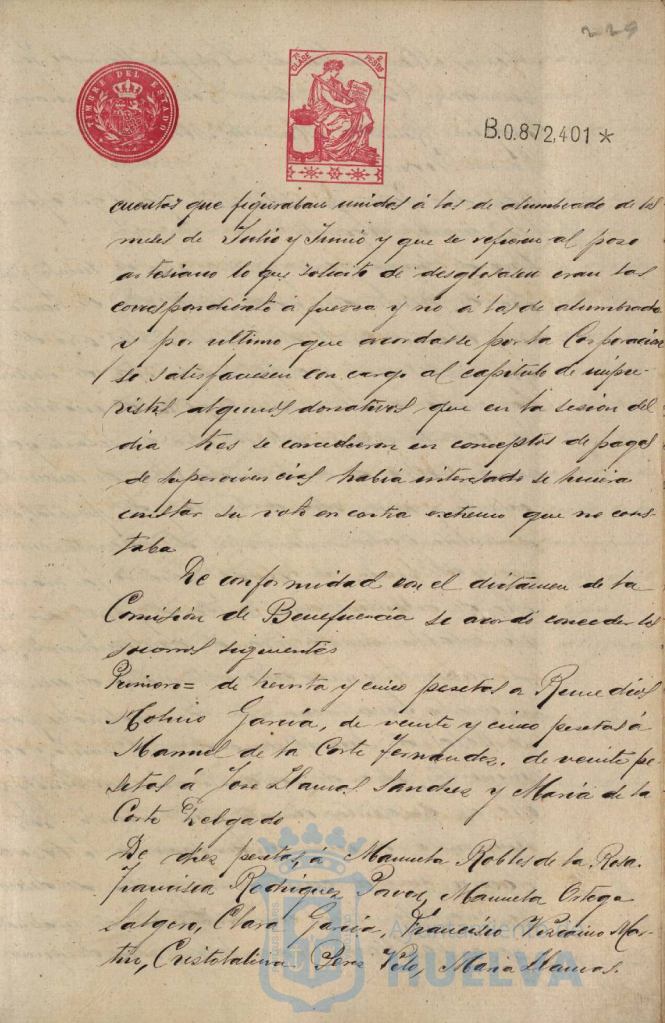 229
TIMBRE DEL ESTADO
7ª CLASE
PESETAS
B.0.872,401 *
cuentas que figuraban unidas á las de alumbrado de los
meses de Julio y Junio y que se refieren al pozo
artesiano lo que solicitó de desglosasen eran las
correspondiente á fuerza y no á las de alumbrado
y por ultimo que acordasse por la Corporacion
se satisfaciesen con cargo al capitulo de impre-
vistos algunos donativos que en la sesion del
dia tres se concedieron en conceptos de pagas
de supervivencias había interesado se hiciera
constar su voto en contra extremo que no cons-
taba
De conformidad con el dictamen de la
Comisión de Beneficencia se acordó conceder los
socorros siguientes
Primero= de treinta y cinco pesetas a Remedios
Molino García, de veinte y cinco pesetas á
Manuel de la Corte Fernandez, de veinte pe-
setas á Jose Llamas Sanchez y María de la
Corte Delgado
De diez pesetas, á Manuela Robles de la Rosa.
Francisca Rodriguez, Manuela Ortega
Salgero, Clara García, Francisco Mar-
tin, Cristobalina Perez Velo, María Llamas.
Ayuntamiento de
HUELVA